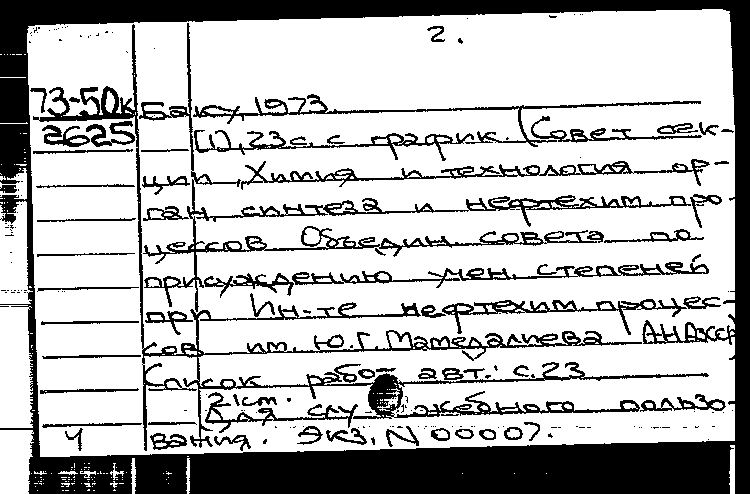 2.
73-50к Баку, 1973.
2625 [1], 23с. с график. (Совет сек-
ции „Химия и технология ор-
ган. синтеза и нефтехим. про-
цессов Объедин. совета по
присуждению учен. степеней
при Ин-те нефтехим. процес-
сов им. Ю.Г. Мамедалиева АН АзССР)
Список работ авт.: с.23
21см.
Для служебного пользо-
Ч вания. Экз. N 00007.